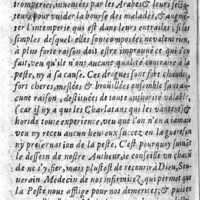 tromperies, inuentées par les Arabes & leurs secta-
teurs, pour vuider la bourse des malades, & augmẽ-
ter l'intemperie qui est dans leurs entrailles; si les
simples desquels elles sont composées, ne valent riẽ,
à plus forte raison doit estre improuué ce qui s'en
fait, veu qu'ils n'ont aucune qualité contraire à la
peste, ny à sa cause. Ces drogues sont fort chaudes,
fort cheres, meslées & brouillées ensemble sans au-
cune raison, destituées de toute authorité valable,
(car il n'y a que les Charlatans qui les vantent) &
hors de toute experience, veu que l'on n'en a iamais
veu ny receu aucun heureux succez, en la guerison
ny preseruation de la peste. C'est pourquoy suiuãt
le dessein de nostre Autheur, ie conseille vn chacũ
de ne s'y fier, mais plustost de recourir à Dieu, Sou-
uerain Medecin de nos infirmitez, qui permet que
la Peste nous afflige pour nos demerites; & puis